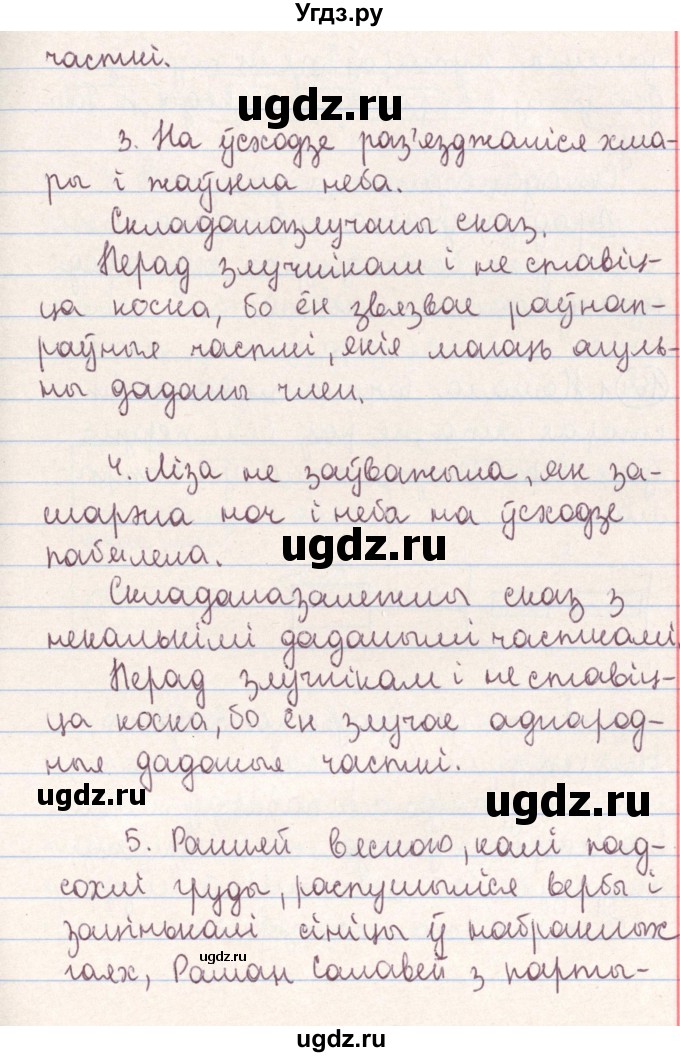 Угдз.ру
часткі.
ugdz.ru
3. На ўсходзе раз'язджаліся хма-
ры і жаўцела неба.
Складаназлучаны сказ.
Перад злучнікам і не ставіц-
ца коска, бо ён звязвае раўнап-
раўныя часткі, якія маюць агуль-
ны даданы член.
4. Ліза не заўважыла, як за-
шарэла ноч і неба на ўсходзе
ugdz.ru
пабялела.
Складаназалежны сказ з
некалькімі даданымі часткамі.
Перад злучнікам і не ставіц-
ца коска, бо ён злучае аднарод-
ныя даданыя часткі.
ugdz.ru
ugdz.ru
5. Ранняй вясною, калі пад-
сохлі груды, распушыліся вербы і
зацінькалі сініцы ў набраклых
ugdz.ru
гаях, Раман Салавей з парты-
ugdz.ru